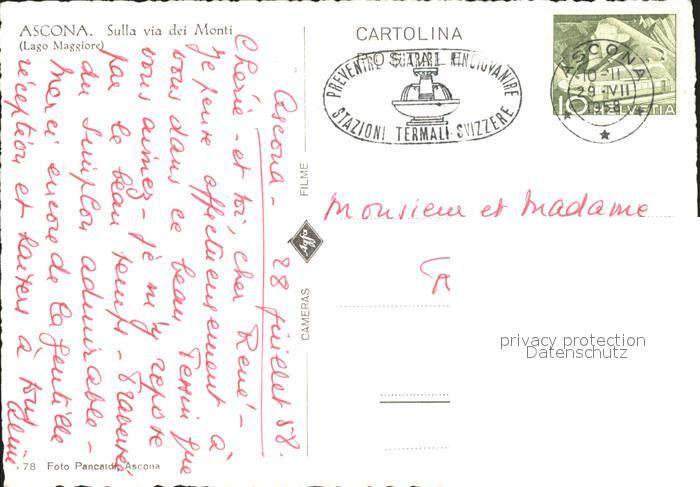 ASCONA. Sulla via dei Monti
(Lago Maggiore)
CARTOLINA
PREVENIRE GUARIRE RINGIOVANIRE
STAZIONI TERMALI SVIZZERE
ASCONA
-10-11
29.VII
1958
10 HELVETIA
Ascona - 28 juillet 58.
Chérie - et toi, cher René -
je pense affectueusement à
vous dans ce beau Tessin que
vous aimez - je m'y repose
par le beau temps - Traversée
du Simplon admirable -
Merci encore de la gentille
réception et baisers à
Monsieur et Madame
FILME
agfa
CAMERAS
privacy protection
Datenschutz
78 Foto Pancaldi, Ascona